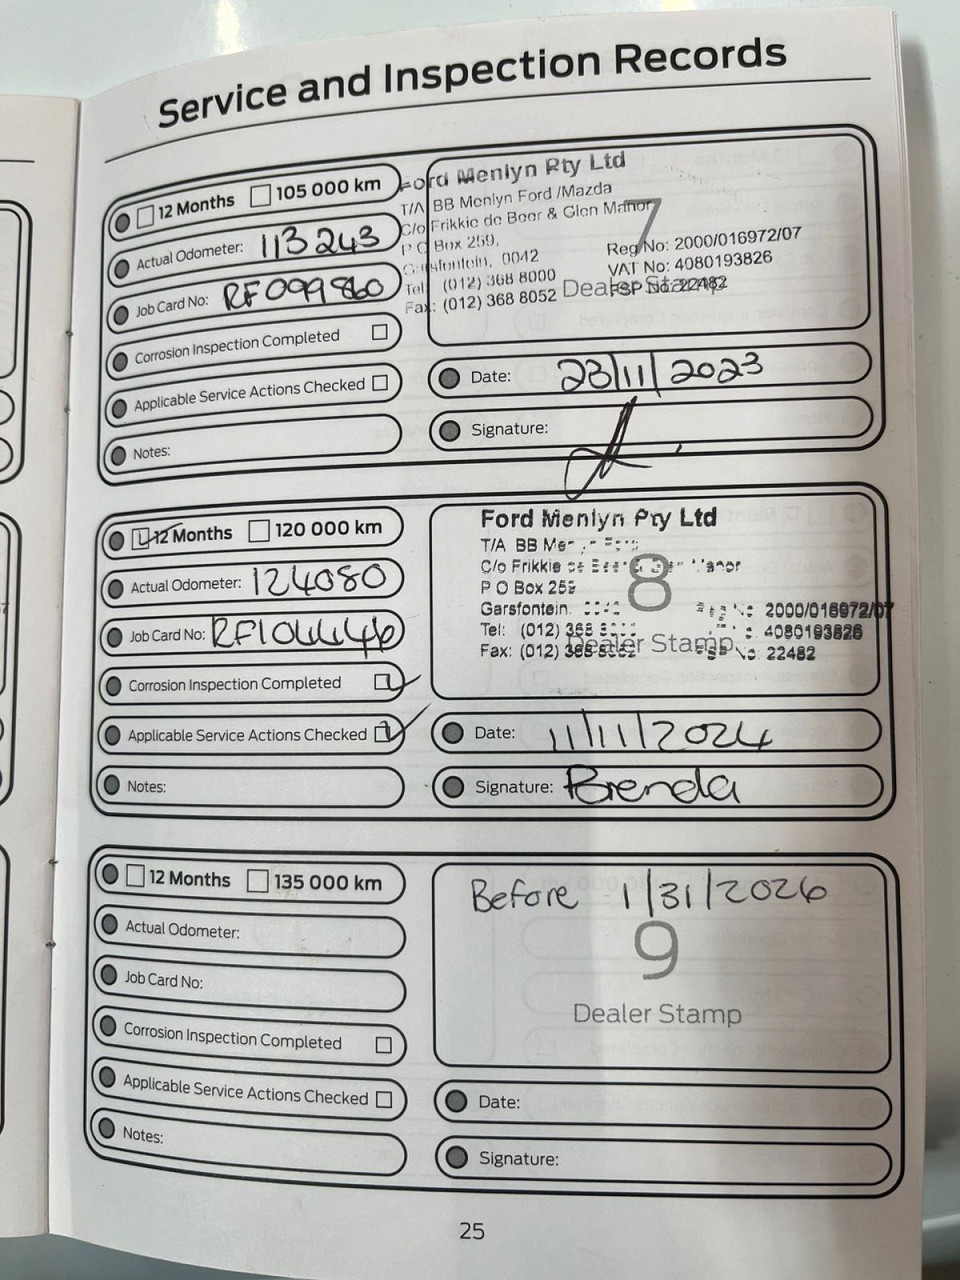 Service and Inspection Records
12 Months 105 000 km
Actual Odometer: 113 243
Job Card No: RF099860
Corrosion Inspection Completed
Applicable Service Actions Checked
Notes:
Ford Menlyn Pty Ltd
T/A BB Menlyn Ford /Mazda
C/o Frikkie de Beer & Glen Manor
P O Box 259,
Garsfontein, 0042
Tel: (012) 368 8000
Fax: (012) 368 8052
7
Reg No: 2000/016972/07
VAT No: 4080193826
FSP No: 22482
Dealer Stamp
Date: 23/11/2023
Signature:
12 Months 120 000 km
Actual Odometer: 124080
Job Card No: RF104446
Corrosion Inspection Completed
Applicable Service Actions Checked
Notes:
Ford Menlyn Pty Ltd
T/A BB
C/o Frikkie Manor
P O Box 259
Garsfontein.
Tel: (012) 368
Fax: (012) 368
8
2000/016972/07
4080193826
22482
Dealer Stamp
Date: 11/11/2024
Signature: Brenda
12 Months 135 000 km
Actual Odometer:
Job Card No:
Corrosion Inspection Completed
Applicable Service Actions Checked
Notes:
Before 1/31/2026
9
Dealer Stamp
Date:
Signature:
25